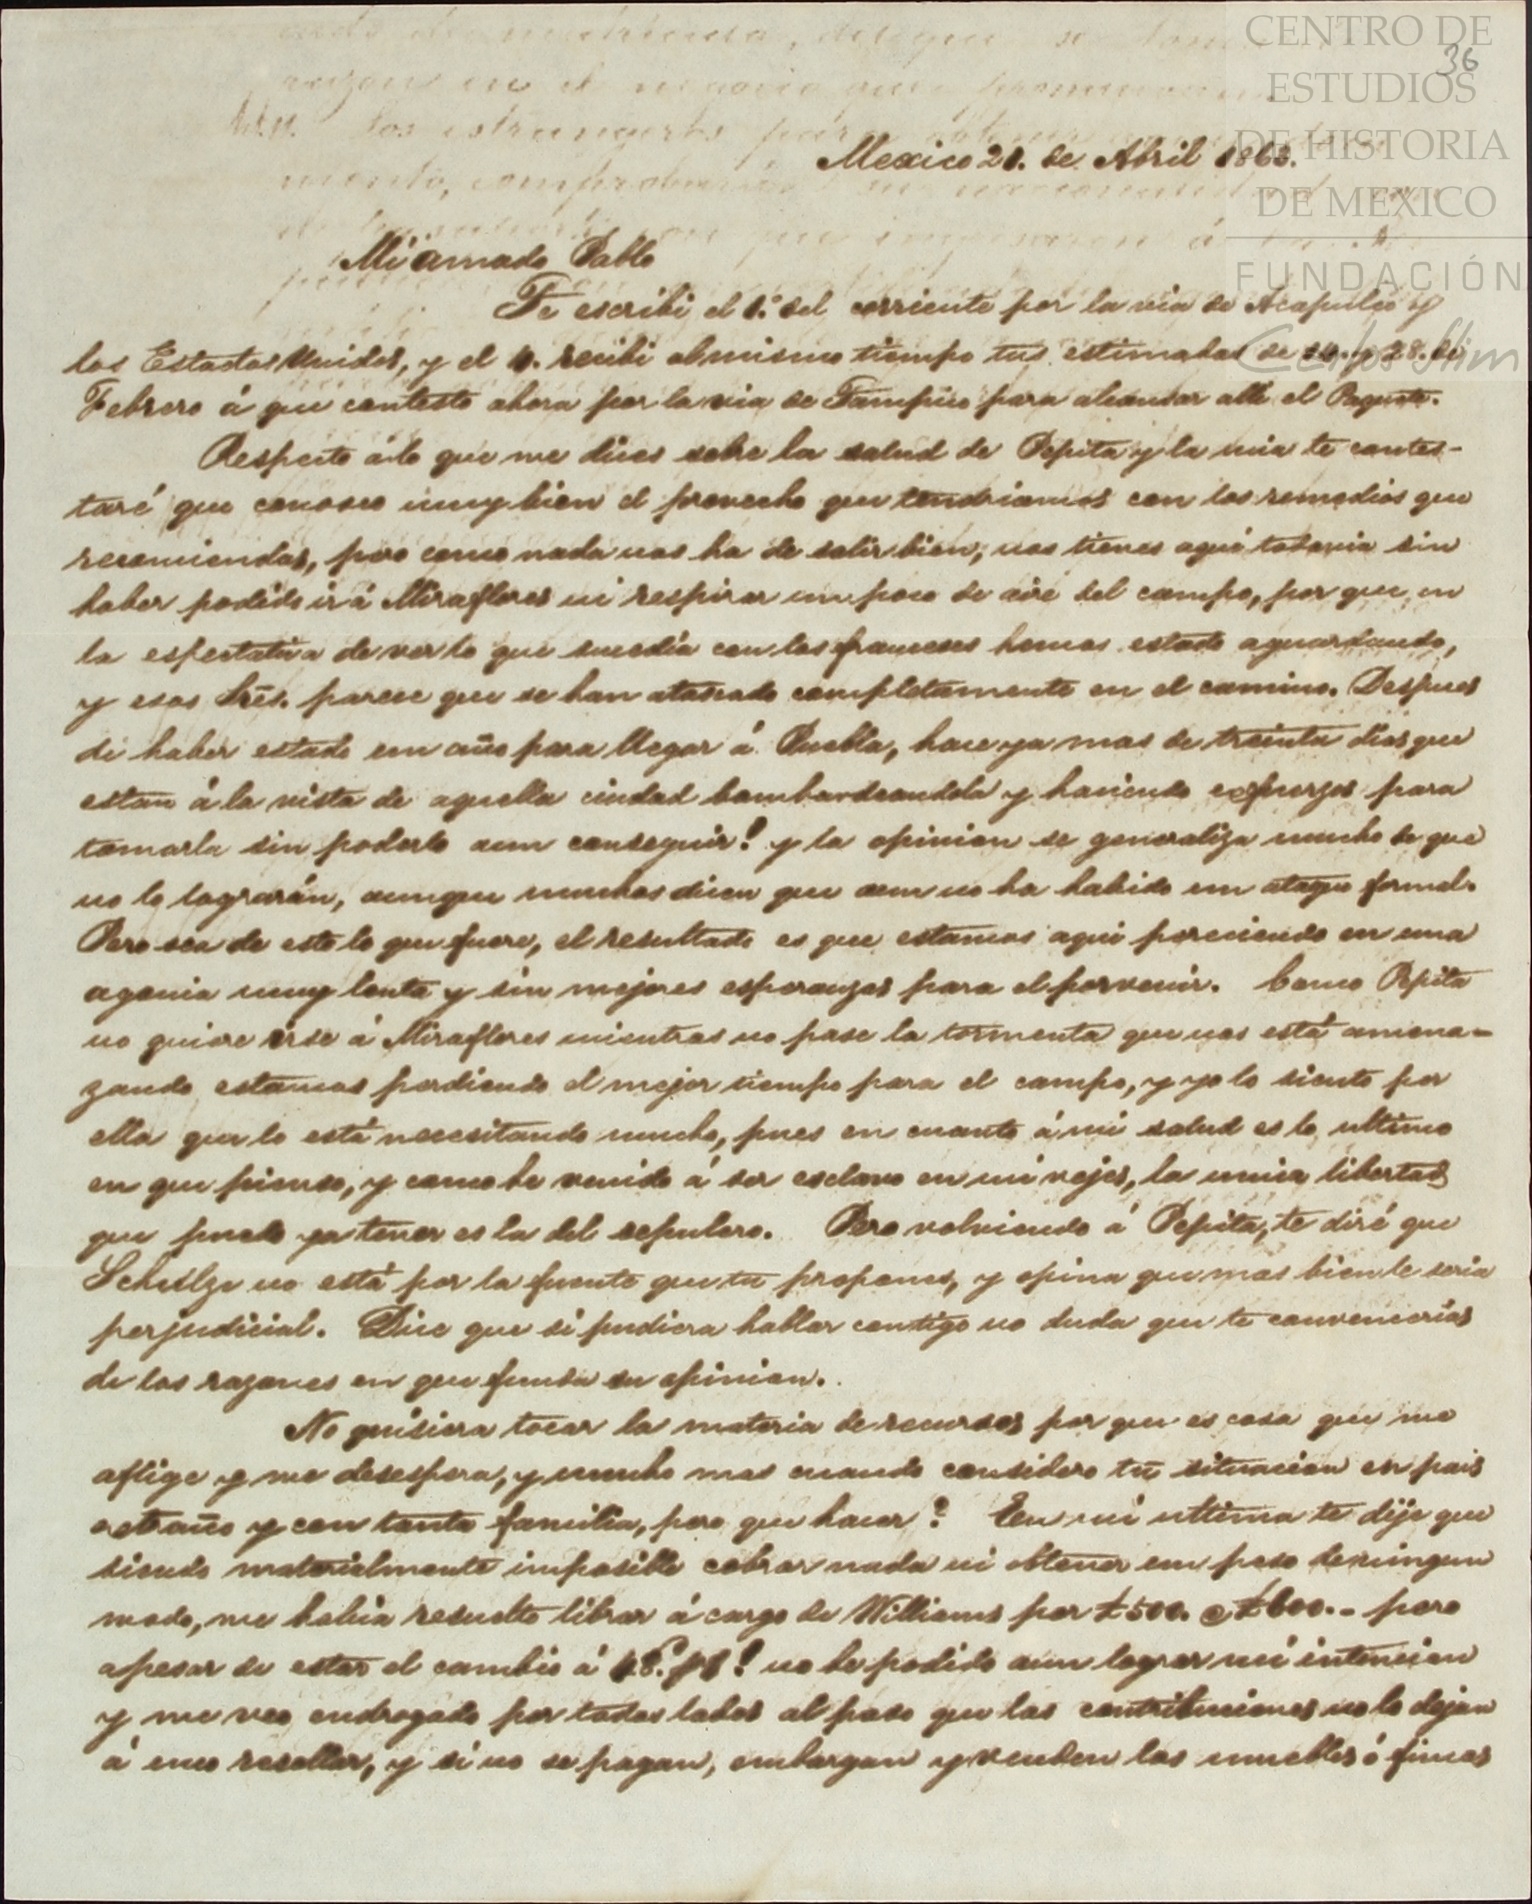 CENTRO DE
ESTUDIOS
DE HISTORIA
DE MEXICO
FUNDACIÓN
Carlos Slim
36
Mexico 21. de Abril 1863.
Mi amado Pablo
Te escribi el 1.º del corriente por la via de Acapulco y
los Estados Unidos, y el 4. recibi al mismo tiempo tus estimadas de y 28. de
Febrero á que contesto ahora por la via de Tampico para alcanzar allí el Paquete.
Respecto á lo que me dices sobre la salud de Pepita y la mia te contes-
taré que conosco muy bien el provecho que tendriamos con los remedios que
recomiendas, pero como nada nos ha de salir bien, nos tienes aquí todavia sin
haber podido ir á Miraflores ni respirar un poco de aire del campo, por que en
la espectativa de ver lo que sucedía con los franceses hemos estado aguardando,
y esos Sres. parece que se han atascado completamente en el camino. Despues
de haber estado un año para llegar á Puebla, hace ya mas de treinta dias que
estan á la vista de aquella ciudad bombardeandola y haciendo esfuerzos para
tomarla sin poderlo aun conseguir! y la opinion se generaliza mucho de que
no lo lograrán, aunque muchos dicen que aun no ha habido un ataque formal.
Pero sea de esto lo que fuere, el resultado es que estamos aqui pereciendo en una
agonia muy lenta y sin mejores esperanzas para el porvenir. Como Pepita
no quiere irse á Miraflores mientras no pase la tormenta que nos está amena-
zando estamos perdiendo el mejor tiempo para el campo, y yo lo siento por
ella que lo está necesitando mucho, pues en cuanto á mi salud es lo ultimo
en que pienso, y como he venido á ser esclavo en mi vejes, la unica libertad
que puedo ya tener es la del sepulcro. Pero volviendo á Pepita, te diré que
Schultze no está por la fuente que tu propones, y opina que mas bien le seria
perjudicial. Dice que si pudiera hablar contigo no duda que te convencerias
de las razones en que funda su opinion.
No quisiera tocar la materia de recursos por que es cosa que me
aflige y me desespera, y mucho mas cuando considero tu situacion en pais
estraño y con tanta familia, pero que hacer? En mi ultima te dije que
siendo materialmente imposible cobrar nada ni obtener un peso de ningun
modo, me habia resuelto librar á cargo de Williams por £500. o £600.- pero
apesar de estar el cambio á no he podido aun lograr mi intencion
y me veo endrogado por todos lados al paso que las contribuciones no lo dejan
á uno resollar, y si no se pagan, embargan y venden los muebles ó fincas